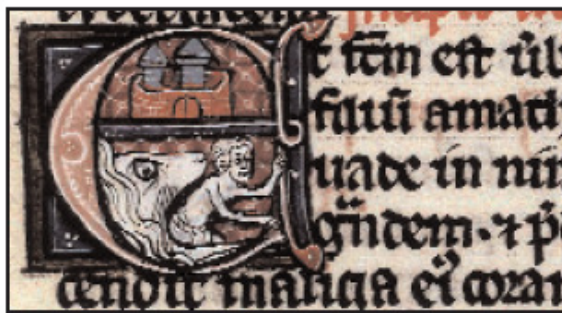 Et fcm est ūb
filiū amath
uade in nin
gͣndem · ⁊ p̄
cendit malicia eiꝰ coram